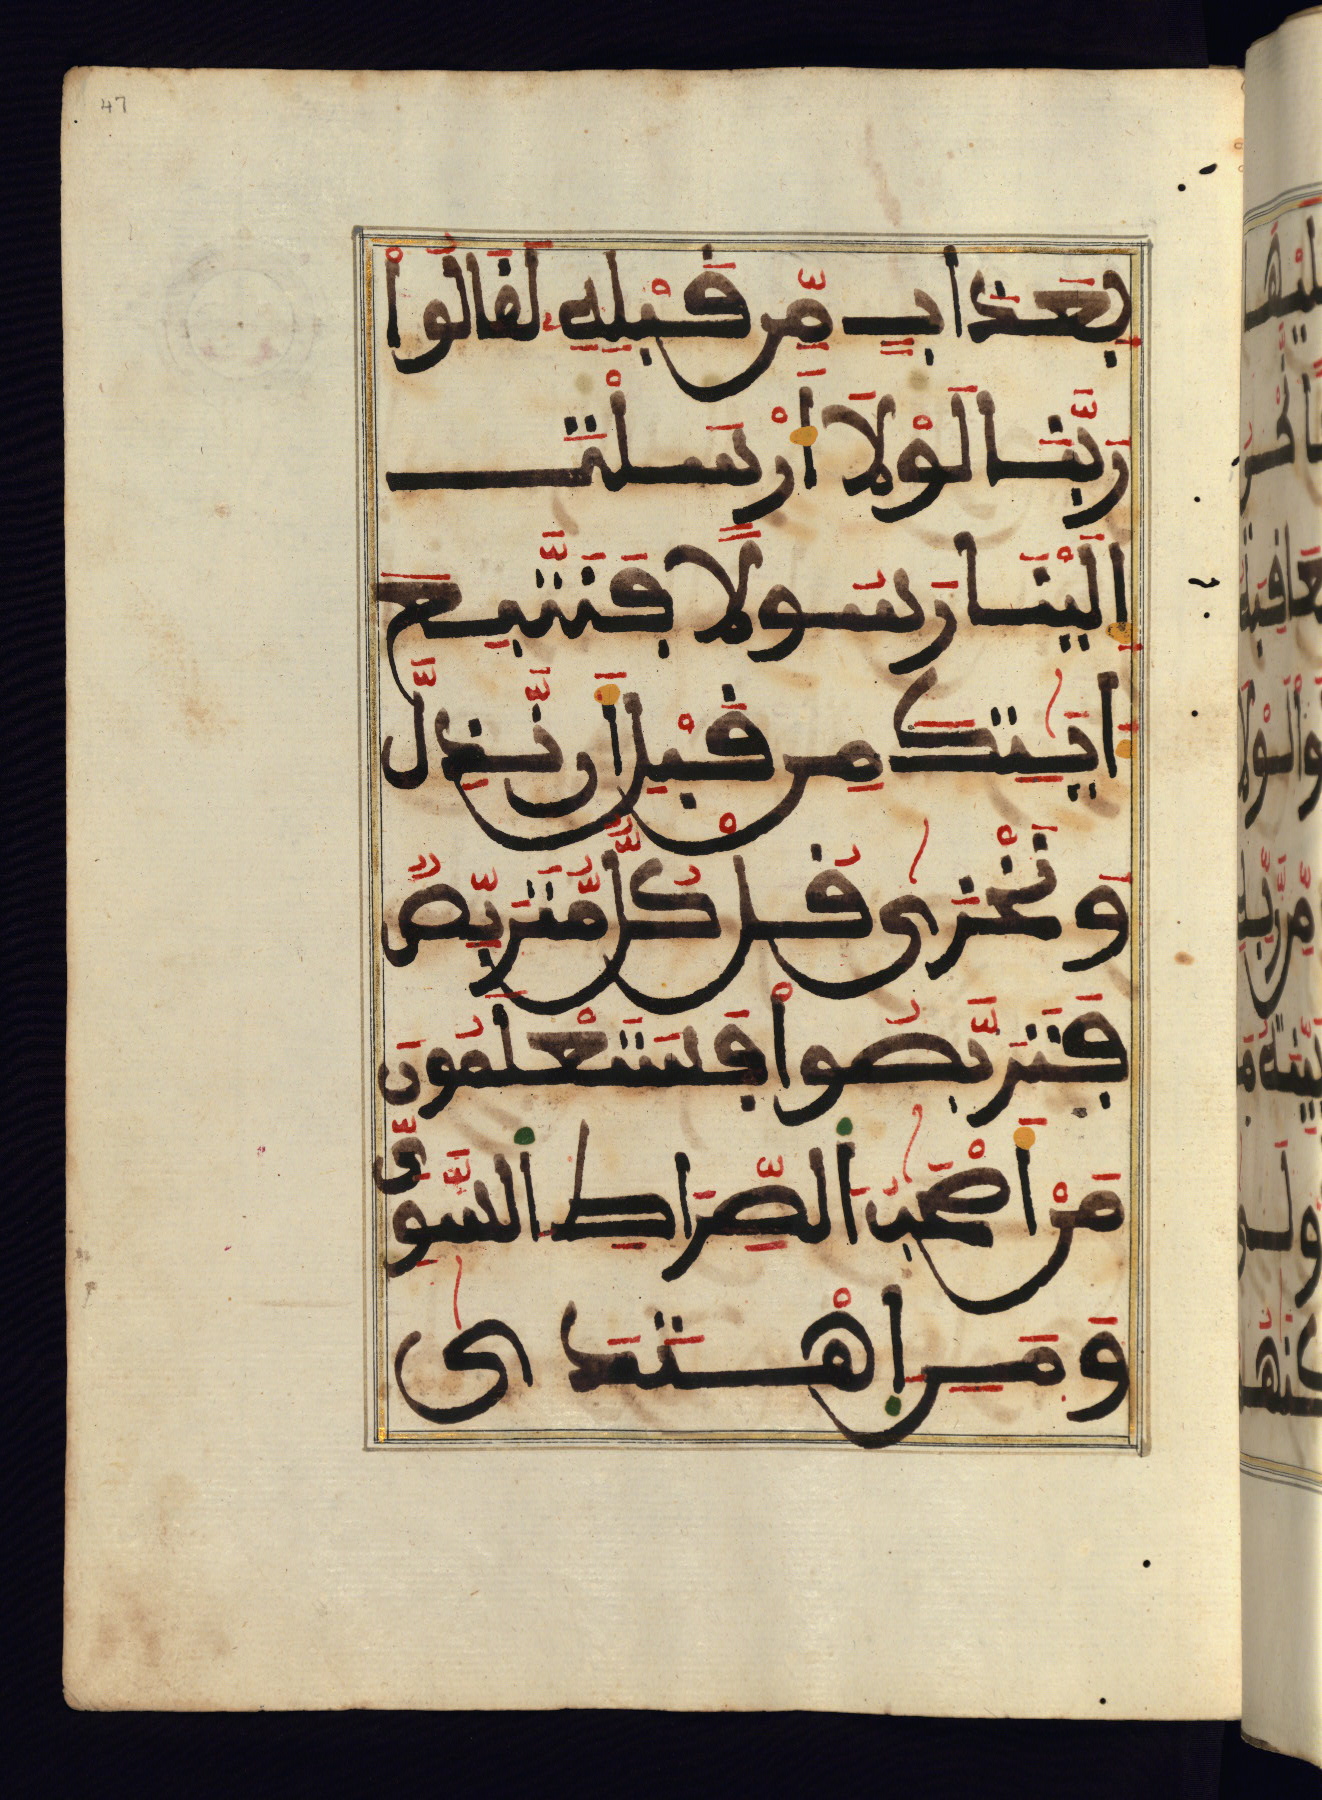 47
بِعَذَابٍ مِّن قَبْلِهِ لَقَالُواْ
رَبَّنَا لَوْلَا أَرْسَلْتَ
إِلَيْنَا رَسُولًا فَنَتَّبِعَ
ءَايَٰتِكَ مِن قَبْلِ أَن نَّذِلَّ
وَنَخْزَىٰ قُلْ كُلٌّ مُّتَرَبِّصٌ
فَتَرَبَّصُواْ فَسَتَعْلَمُونَ
مَنْ أَصْحَٰبُ الصِّرَاطِ السَّوِيِّ
وَمَنِ اهْتَدَىٰ